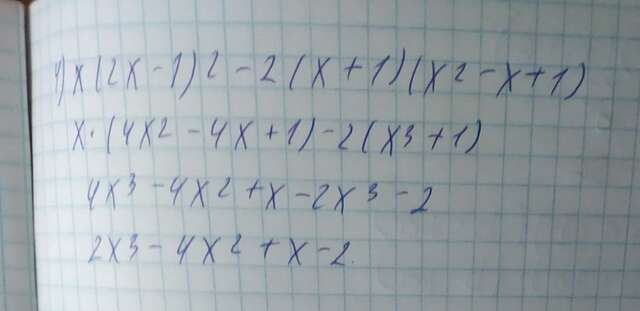 1) x(2x-1)2-2(x+1)(x2-x+1)
x·(4x2-4x+1)-2(x3+1)
4x3-4x2+x-2x3-2
2x3-4x2+x-2.